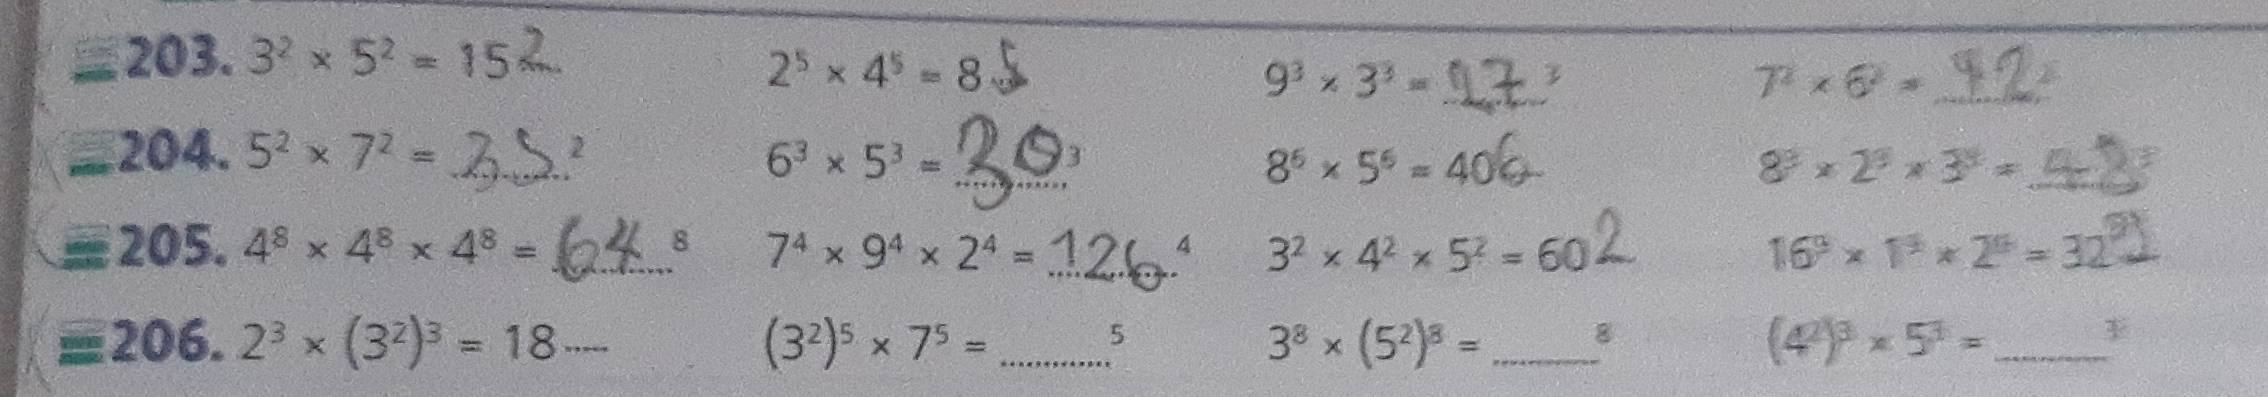 203. 3² × 5² = 15² 2⁵ × 4⁵ = 8⁵ 9³ × 3³ = 27³ 7² × 6² = 42²
204. 5² × 7² = 35² 6³ × 5³ = 30³ 8⁶ × 5⁶ = 40⁶ 8³ × 2³ × 3³ = 48³
205. 4⁸ × 4⁸ × 4⁸ = 64⁸ 7⁴ × 9⁴ × 2⁴ = 126⁴ 3² × 4² × 5² = 60² 16³ × 1³ × 2³ = 32³
206. 2³ × (3²)³ = 18..... (3²)⁵ × 7⁵ = ............⁵ 3⁸ × (5²)⁸ = ............⁸ (4²)³ × 5³ = ............³